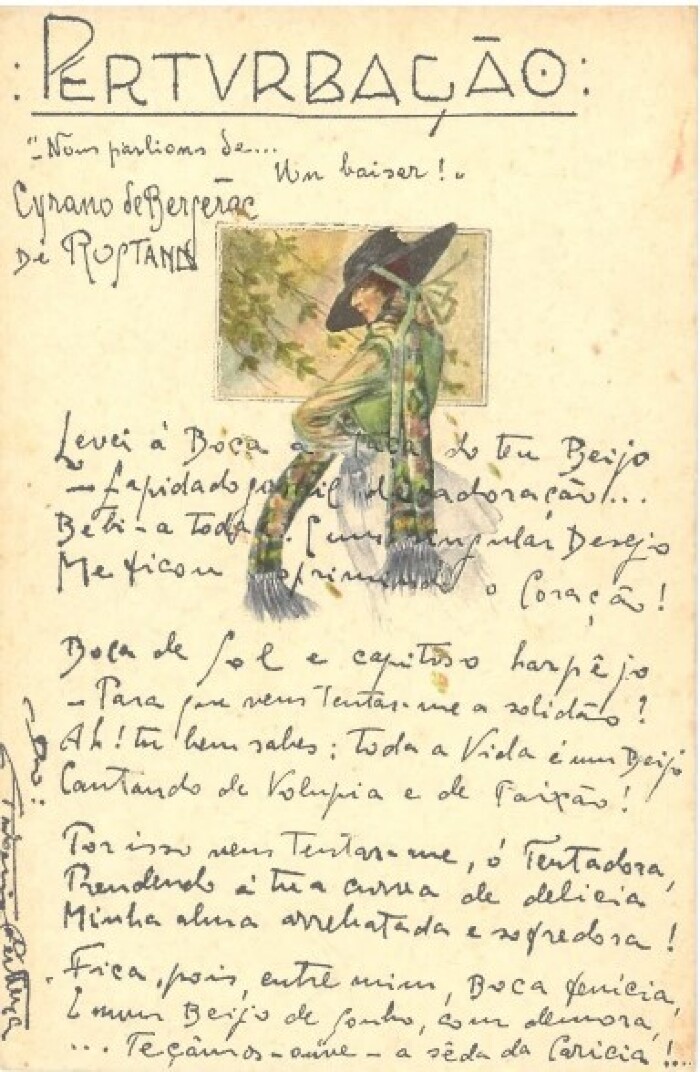 : PERTVRBAÇÃO :
"Nous parlions de...
Un baiser!"
Cyrano de Bergerac
De ROSTAND
Levei á Boca a taça do teu Beijo
— Lapidado da adoração...
Bebi-a toda! E um singular Desejo
Me ficou oprimindo o Coração!
Boca de Sol e capitoso harpêjo
— Para que vens Tentar-me a solidão?
Ah! tu bem sabes: toda a Vida é um Beijo
Cantando de Volupia e de Paixão!
Por isso vens Tentar-me, ó Tentadora,
Prendendo á tua curva de delicia
Minha alma arrebatada e sofredora!
Fica, pois, entre mim, Boca fenícia,
E num Beijo de Sonho, com demora,
... Teçâmos-ouve-a sêda da Caricia!...